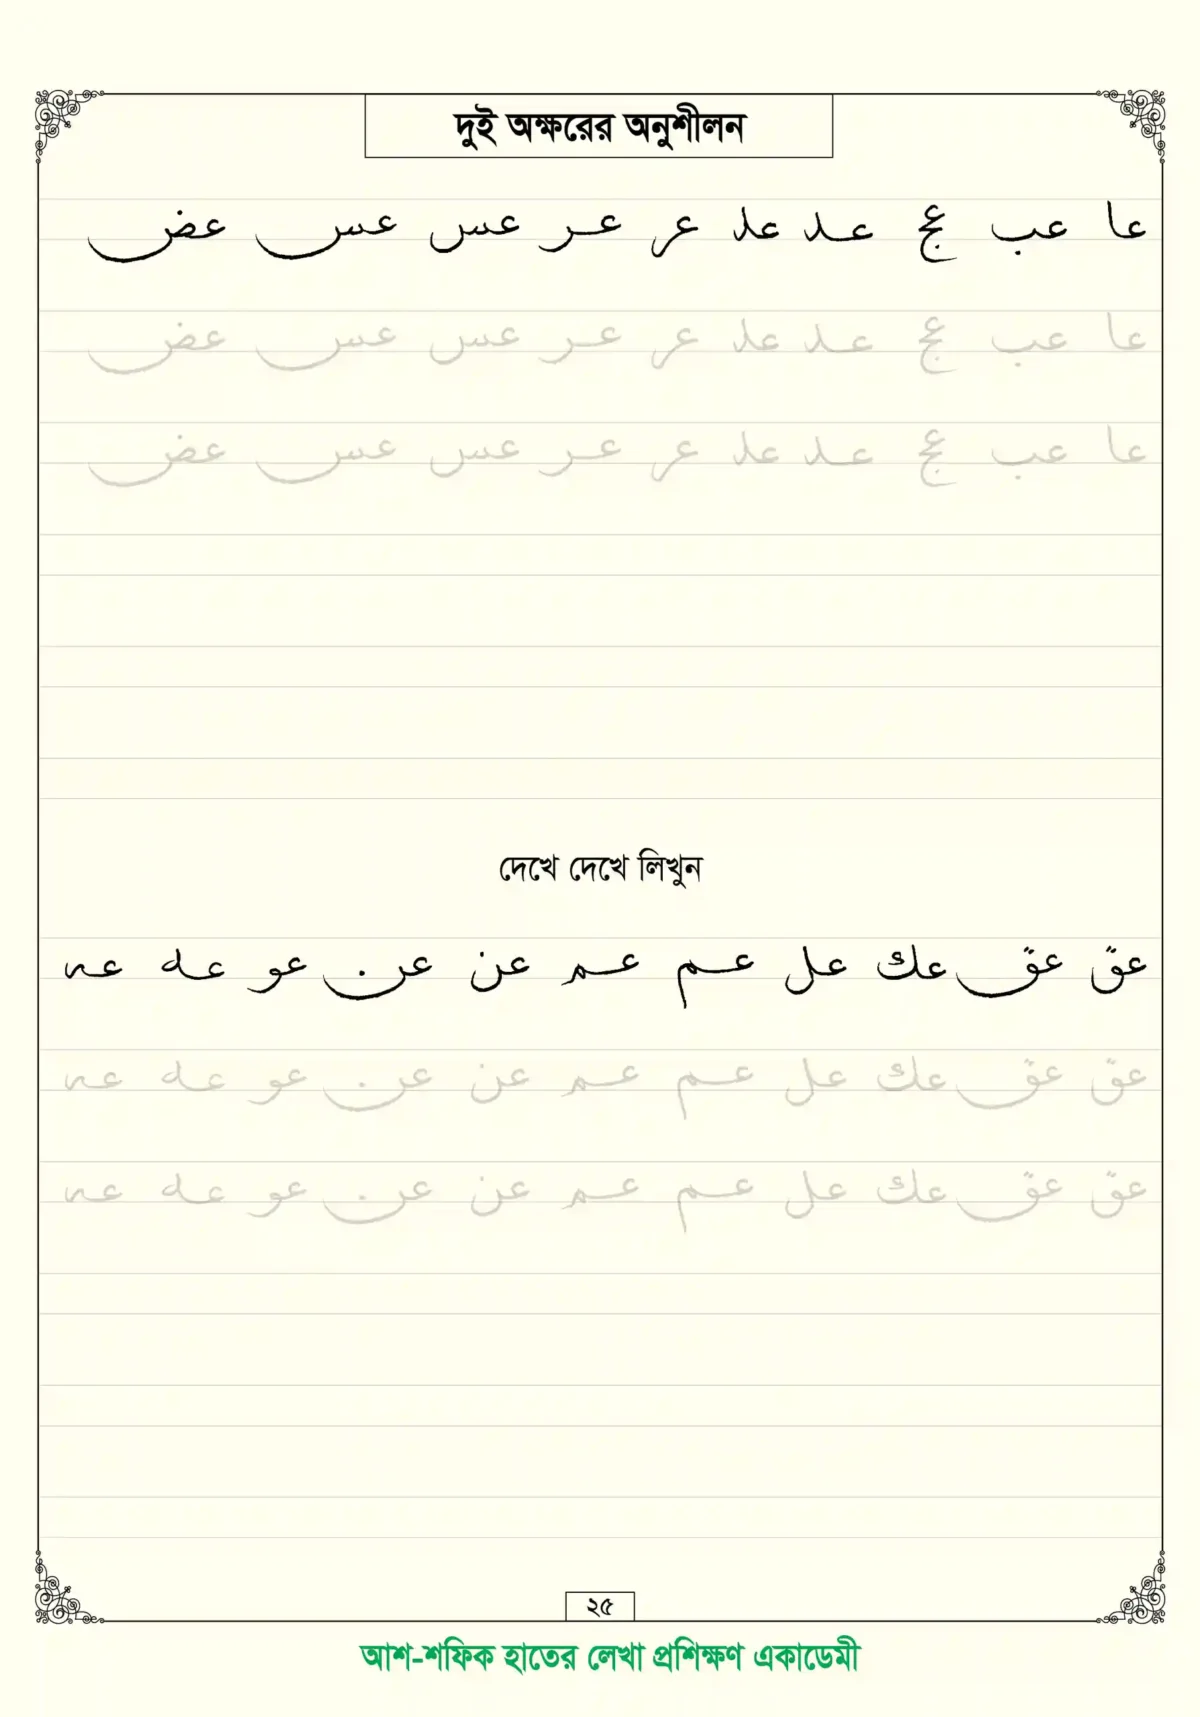 দুই অক্ষরের অনুশীলন
عا عب عج عد عد عر عر عس عس عض
عا عب عج عد عد عر عر عس عس عض
عا عب عج عد عد عر عر عس عس عض
দেখে দেখে লিখুন
عق عق عك عل عم عم عن عن عو عه عه
عق عق عك عل عم عم عن عن عو عه عه
عق عق عك عل عم عم عن عن عو عه عه
২৫
আশ-শফিক হাতের লেখা প্রশিক্ষণ একাডেমী